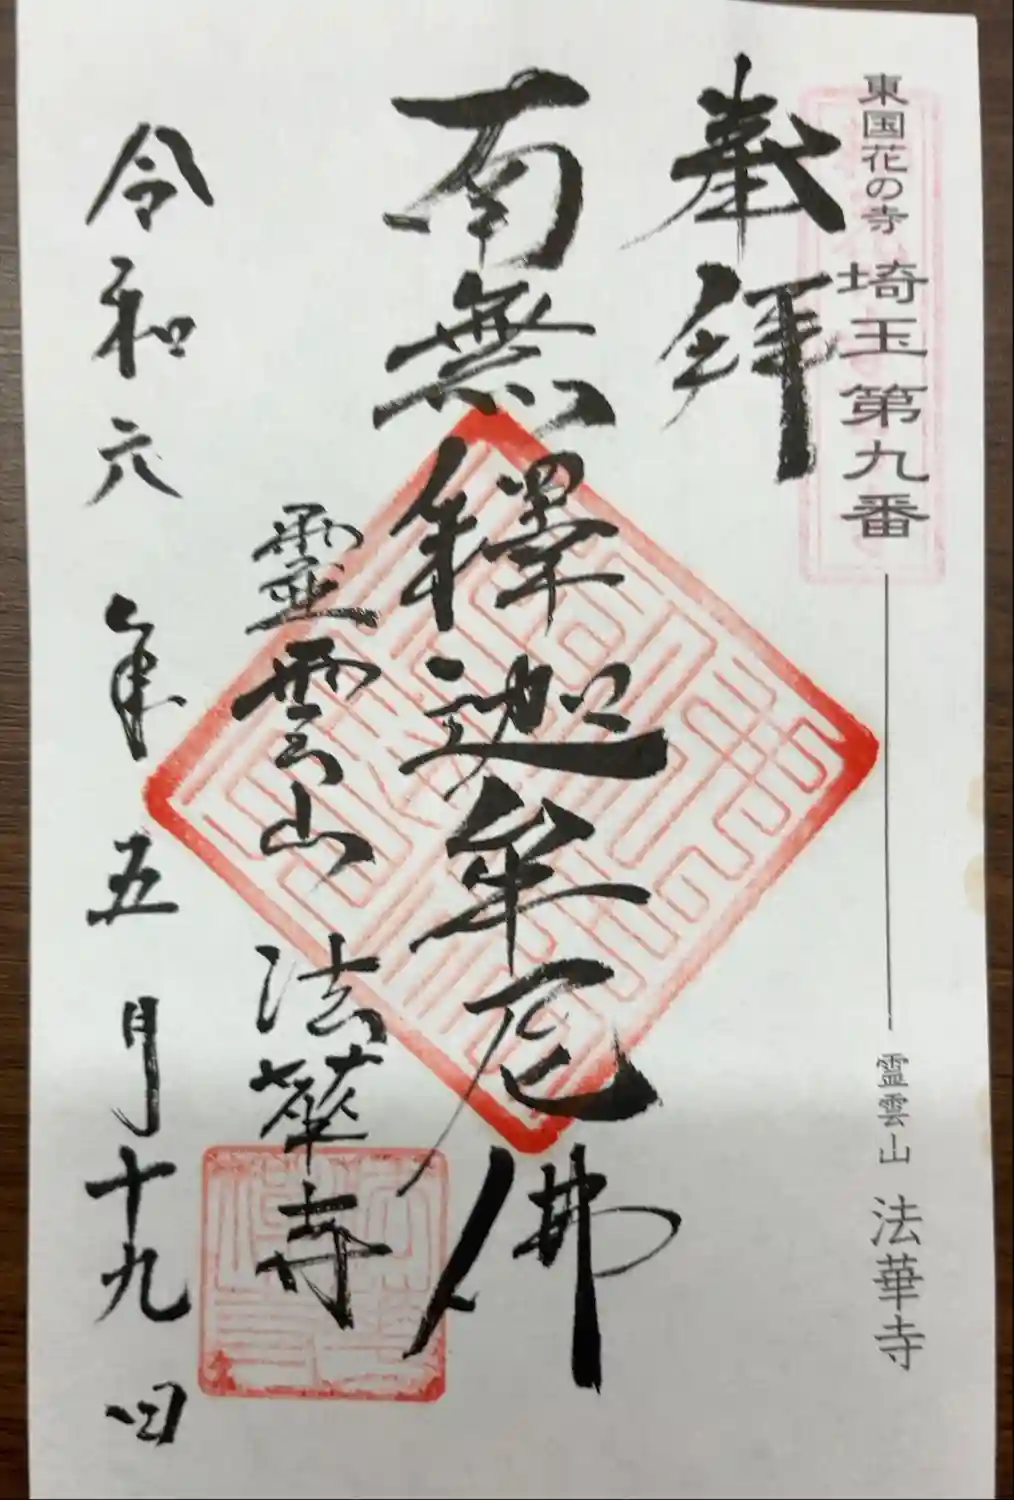 東国花の寺 埼玉第九番 霊雲山 法華寺
奉拝
南無釋迦牟尼佛
霊雲山 法華寺
令和六年五月十九日